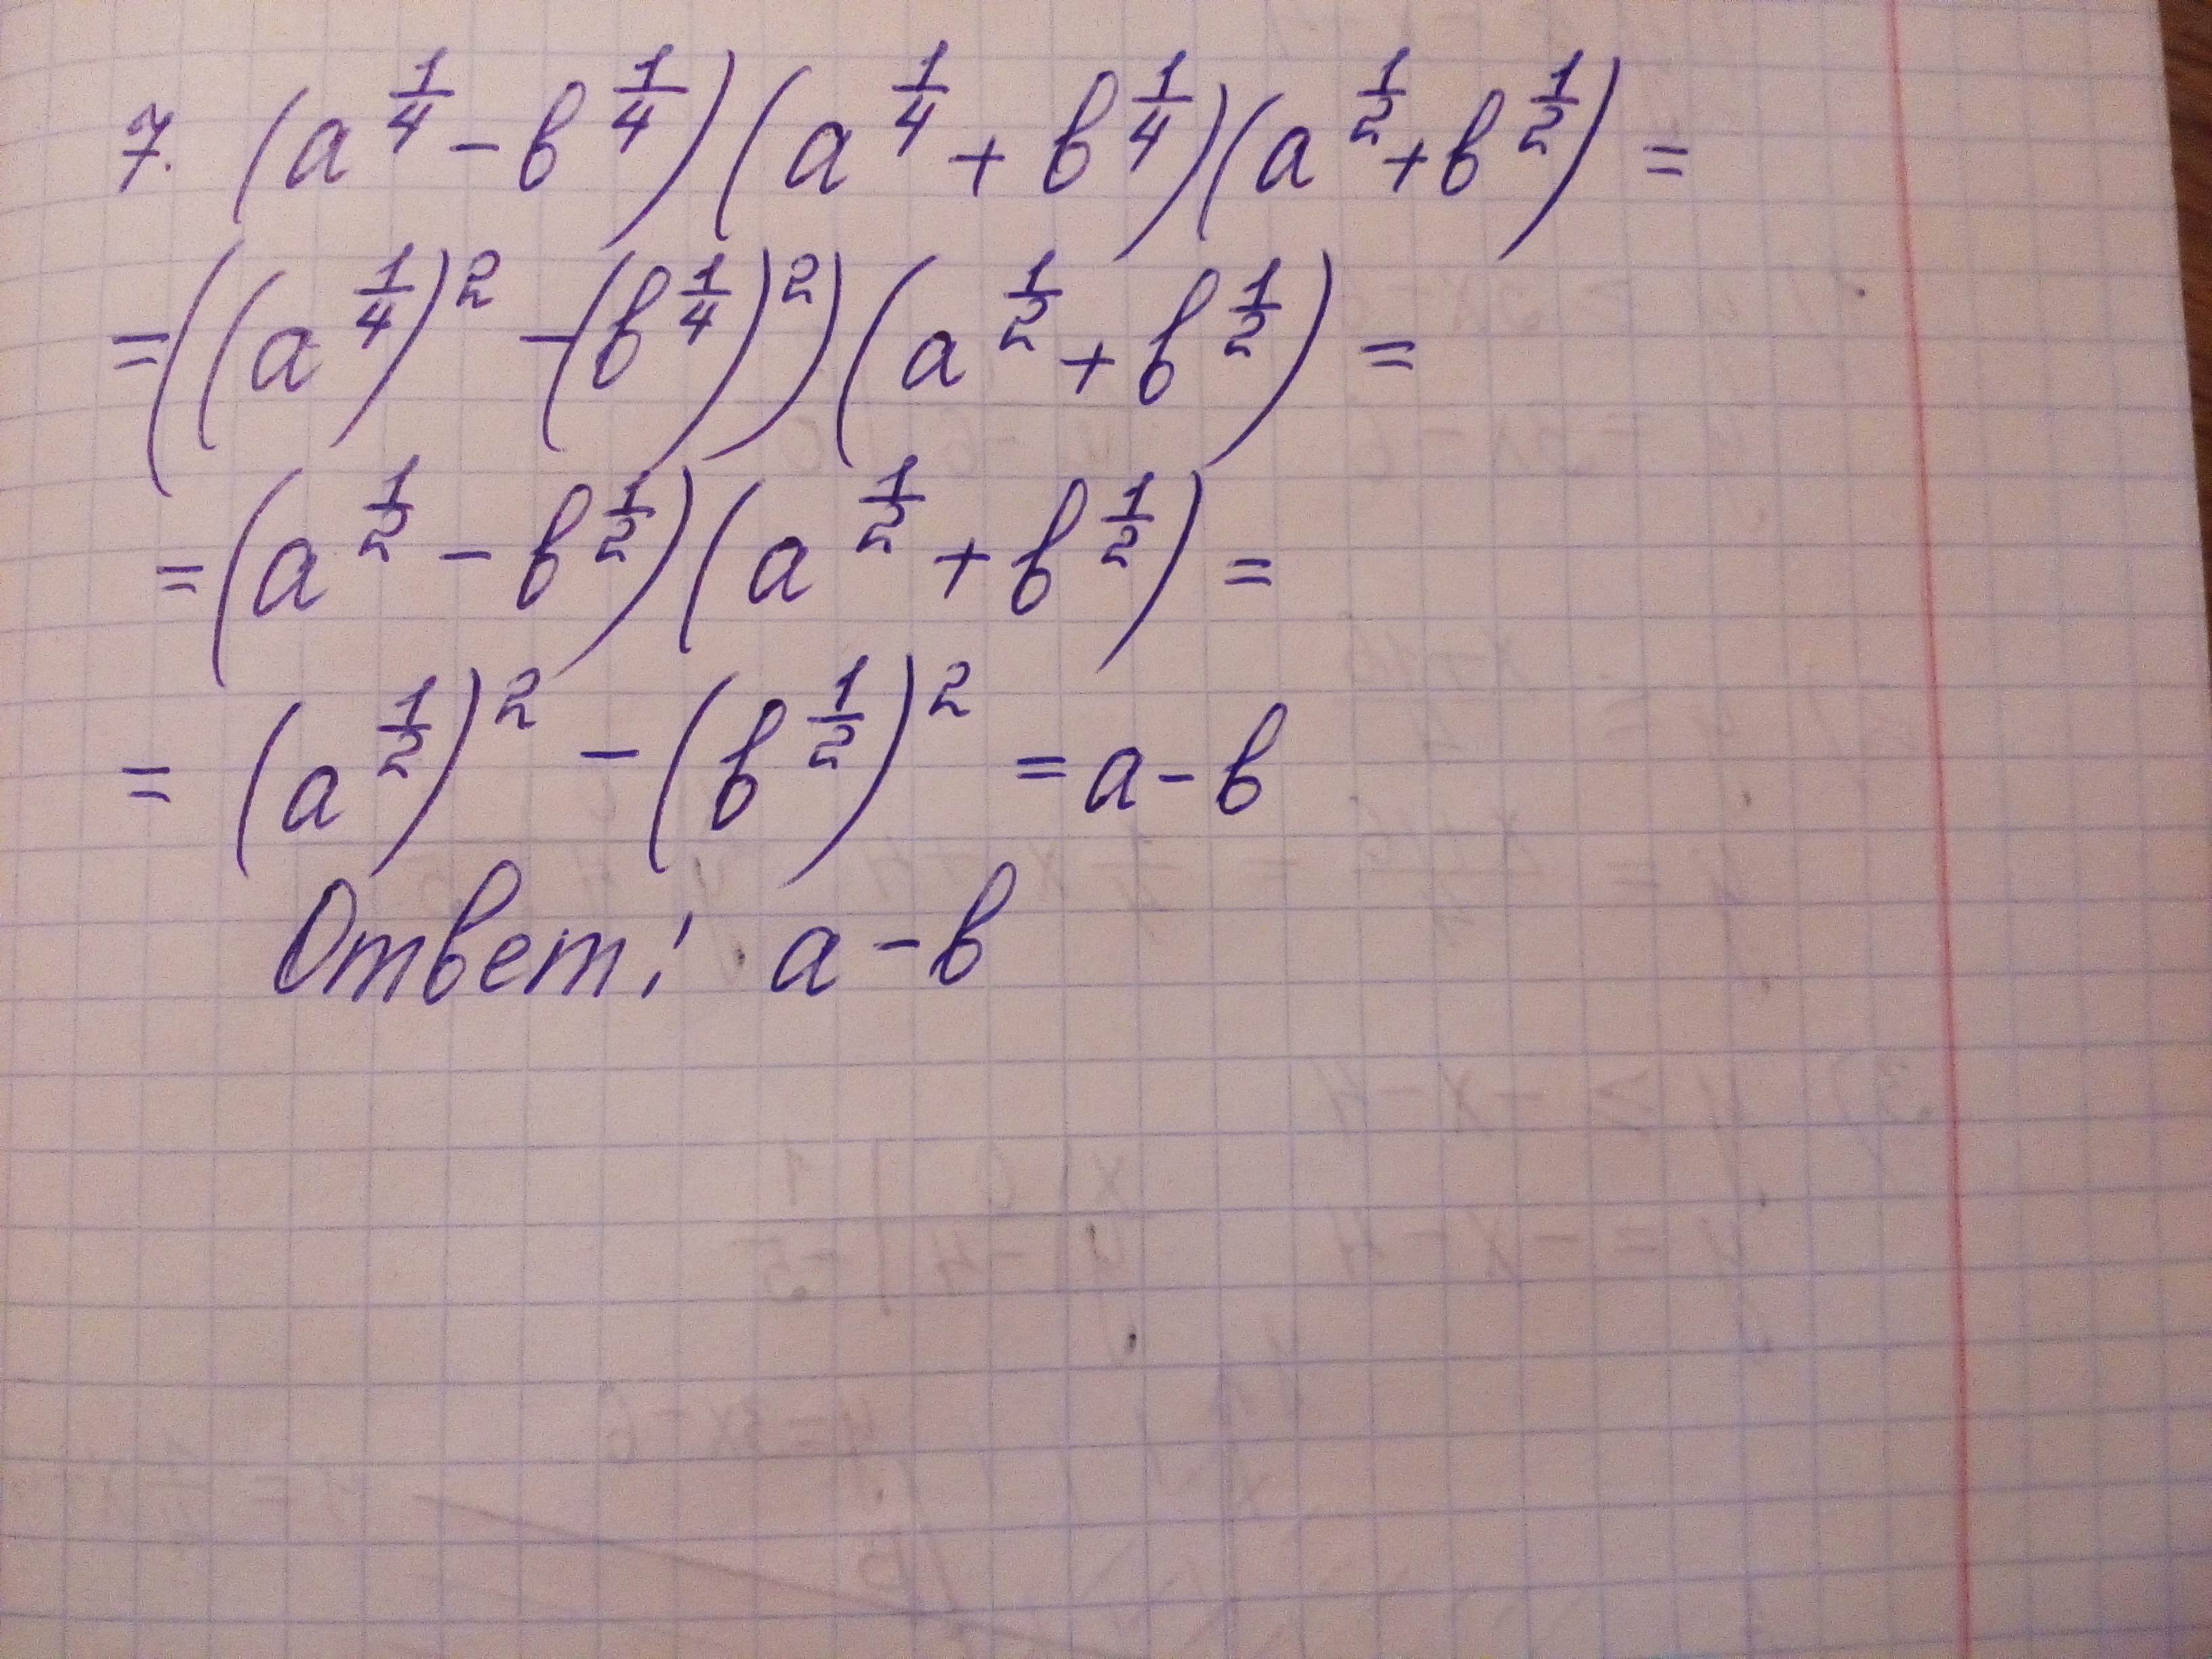 7. (a^{1/4} - в^{1/4})(a^{1/4} + в^{1/4})(a^{1/2} + в^{1/2}) =
= ((a^{1/4})^2 - (в^{1/4})^2)(a^{1/2} + в^{1/2}) =
= (a^{1/2} - в^{1/2})(a^{1/2} + в^{1/2}) =
= (a^{1/2})^2 - (в^{1/2})^2 = a - в
Ответ: a - в